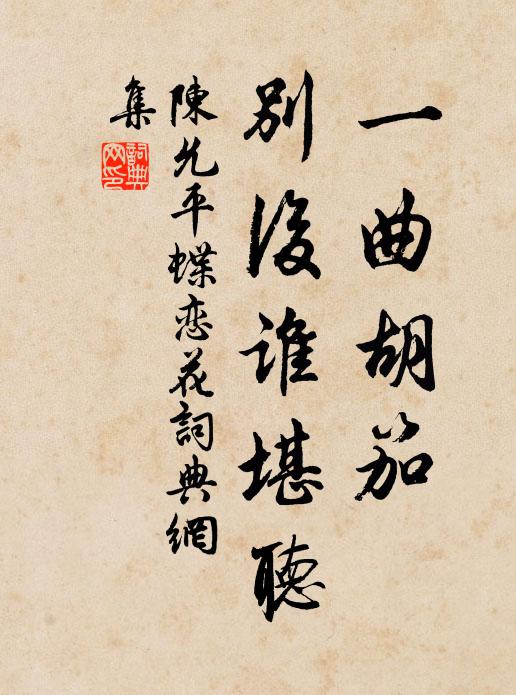 一曲胡笳
別後誰堪聽
陳允平蝶恋花詞典網
集
詞典
网印